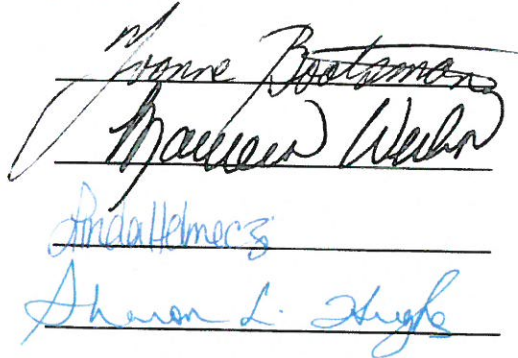 Yvonne Bootsman
Maureen
Linda Helmeczi
Sharon L. Hughs